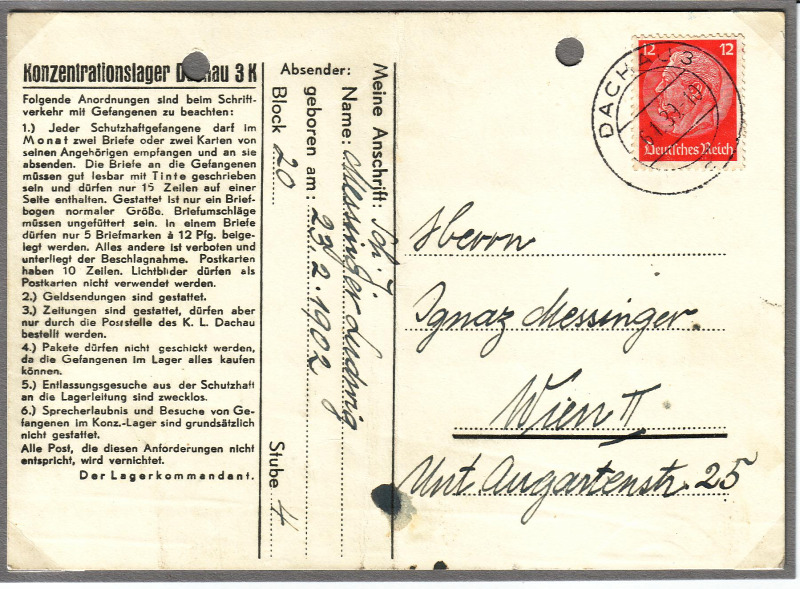 Konzentrationslager Dachau 3 K
Folgende Anordnungen sind beim Schrift-
verkehr mit Gefangenen zu beachten:
1.) Jeder Schutzhaftgefangene darf im
Monat zwei Briefe oder zwei Karten von
seinen Angehörigen empfangen und an sie
absenden. Die Briefe an die Gefangenen
müssen gut lesbar mit Tinte geschrieben
sein und dürfen nur 15 Zeilen auf einer
Seite enthalten. Gestattet ist nur ein Brief-
bogen normaler Größe. Briefumschläge
müssen ungefüttert sein. In einem Briefe
dürfen nur 5 Briefmarken à 12 Pfg. beige-
legt werden. Alles andere ist verboten und
unterliegt der Beschlagnahme. Postkarten
haben 10 Zeilen. Lichtbilder dürfen als
Postkarten nicht verwendet werden.
2.) Geldsendungen sind gestattet.
3.) Zeitungen sind gestattet, dürfen aber
nur durch die Poststelle des K. L. Dachau
bestellt werden.
4.) Pakete dürfen nicht geschickt werden,
da die Gefangenen im Lager alles kaufen
können.
5.) Entlassungsgesuche aus der Schutzhaft
an die Lagerleitung sind zwecklos.
6.) Sprecherlaubnis und Besuche von Ge-
fangenen im Konz.-Lager sind grundsätzlich
nicht gestattet.
Alle Post, die diesen Anforderungen nicht
entspricht, wird vernichtet.
Der Lagerkommandant.
Absender:
Meine Anschrift: Sch. J.
Name: Messinger Ludwig
geboren am: 23.2.1902
Block 20 Stube 4
12 12
Deutsches Reich
DACHAU 3
Herrn
Ignaz Messinger
Wien II
Unt. Augartenstr. 25